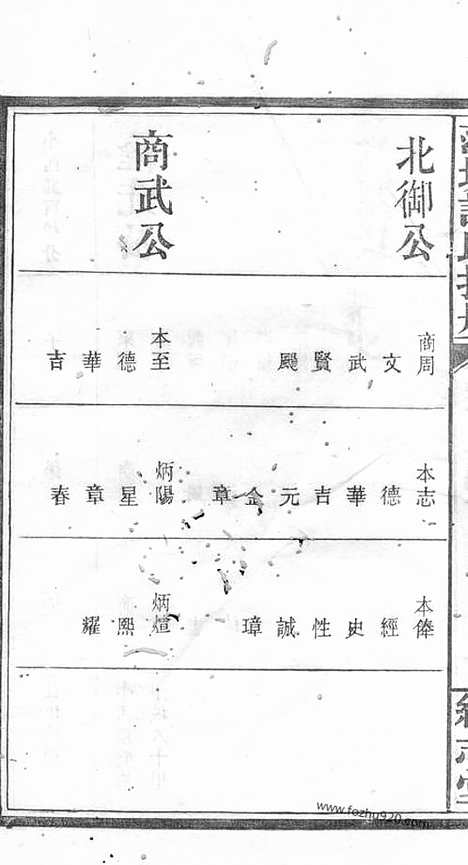 北御公
商周 文 武 賢 颺
本志 德 華 吉 元 金 章
本俸 經 史 性 誠 璋
商武公
本至 德 華 吉
炳陽 星 章 春
炳煊 熙 耀
www.fozhu920.com